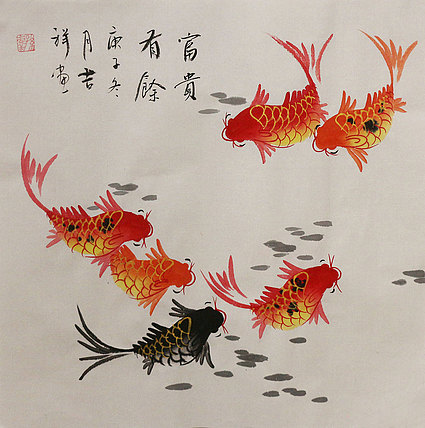 富貴
有餘
庚子冬
月吉
祥畫